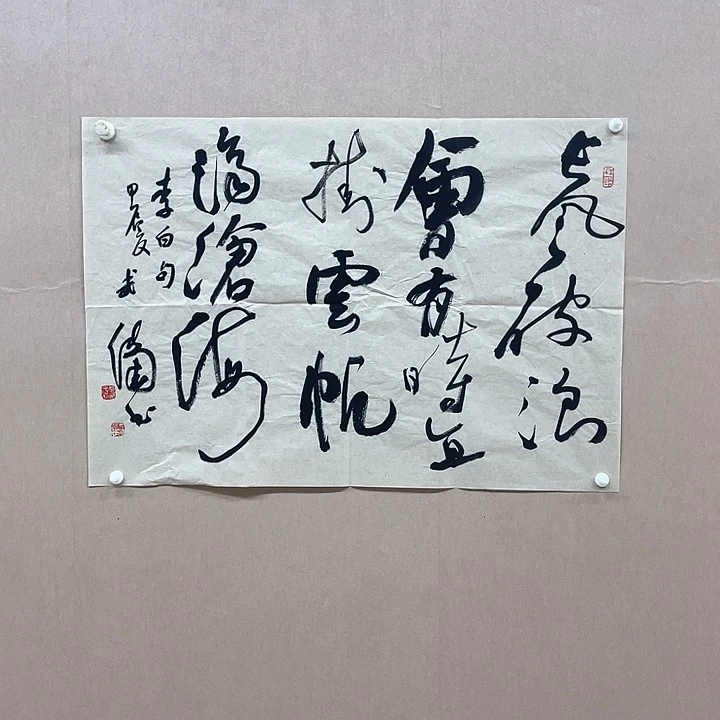 長風破浪
會有時直
掛雲帆
濟滄海
李白句
甲辰夏